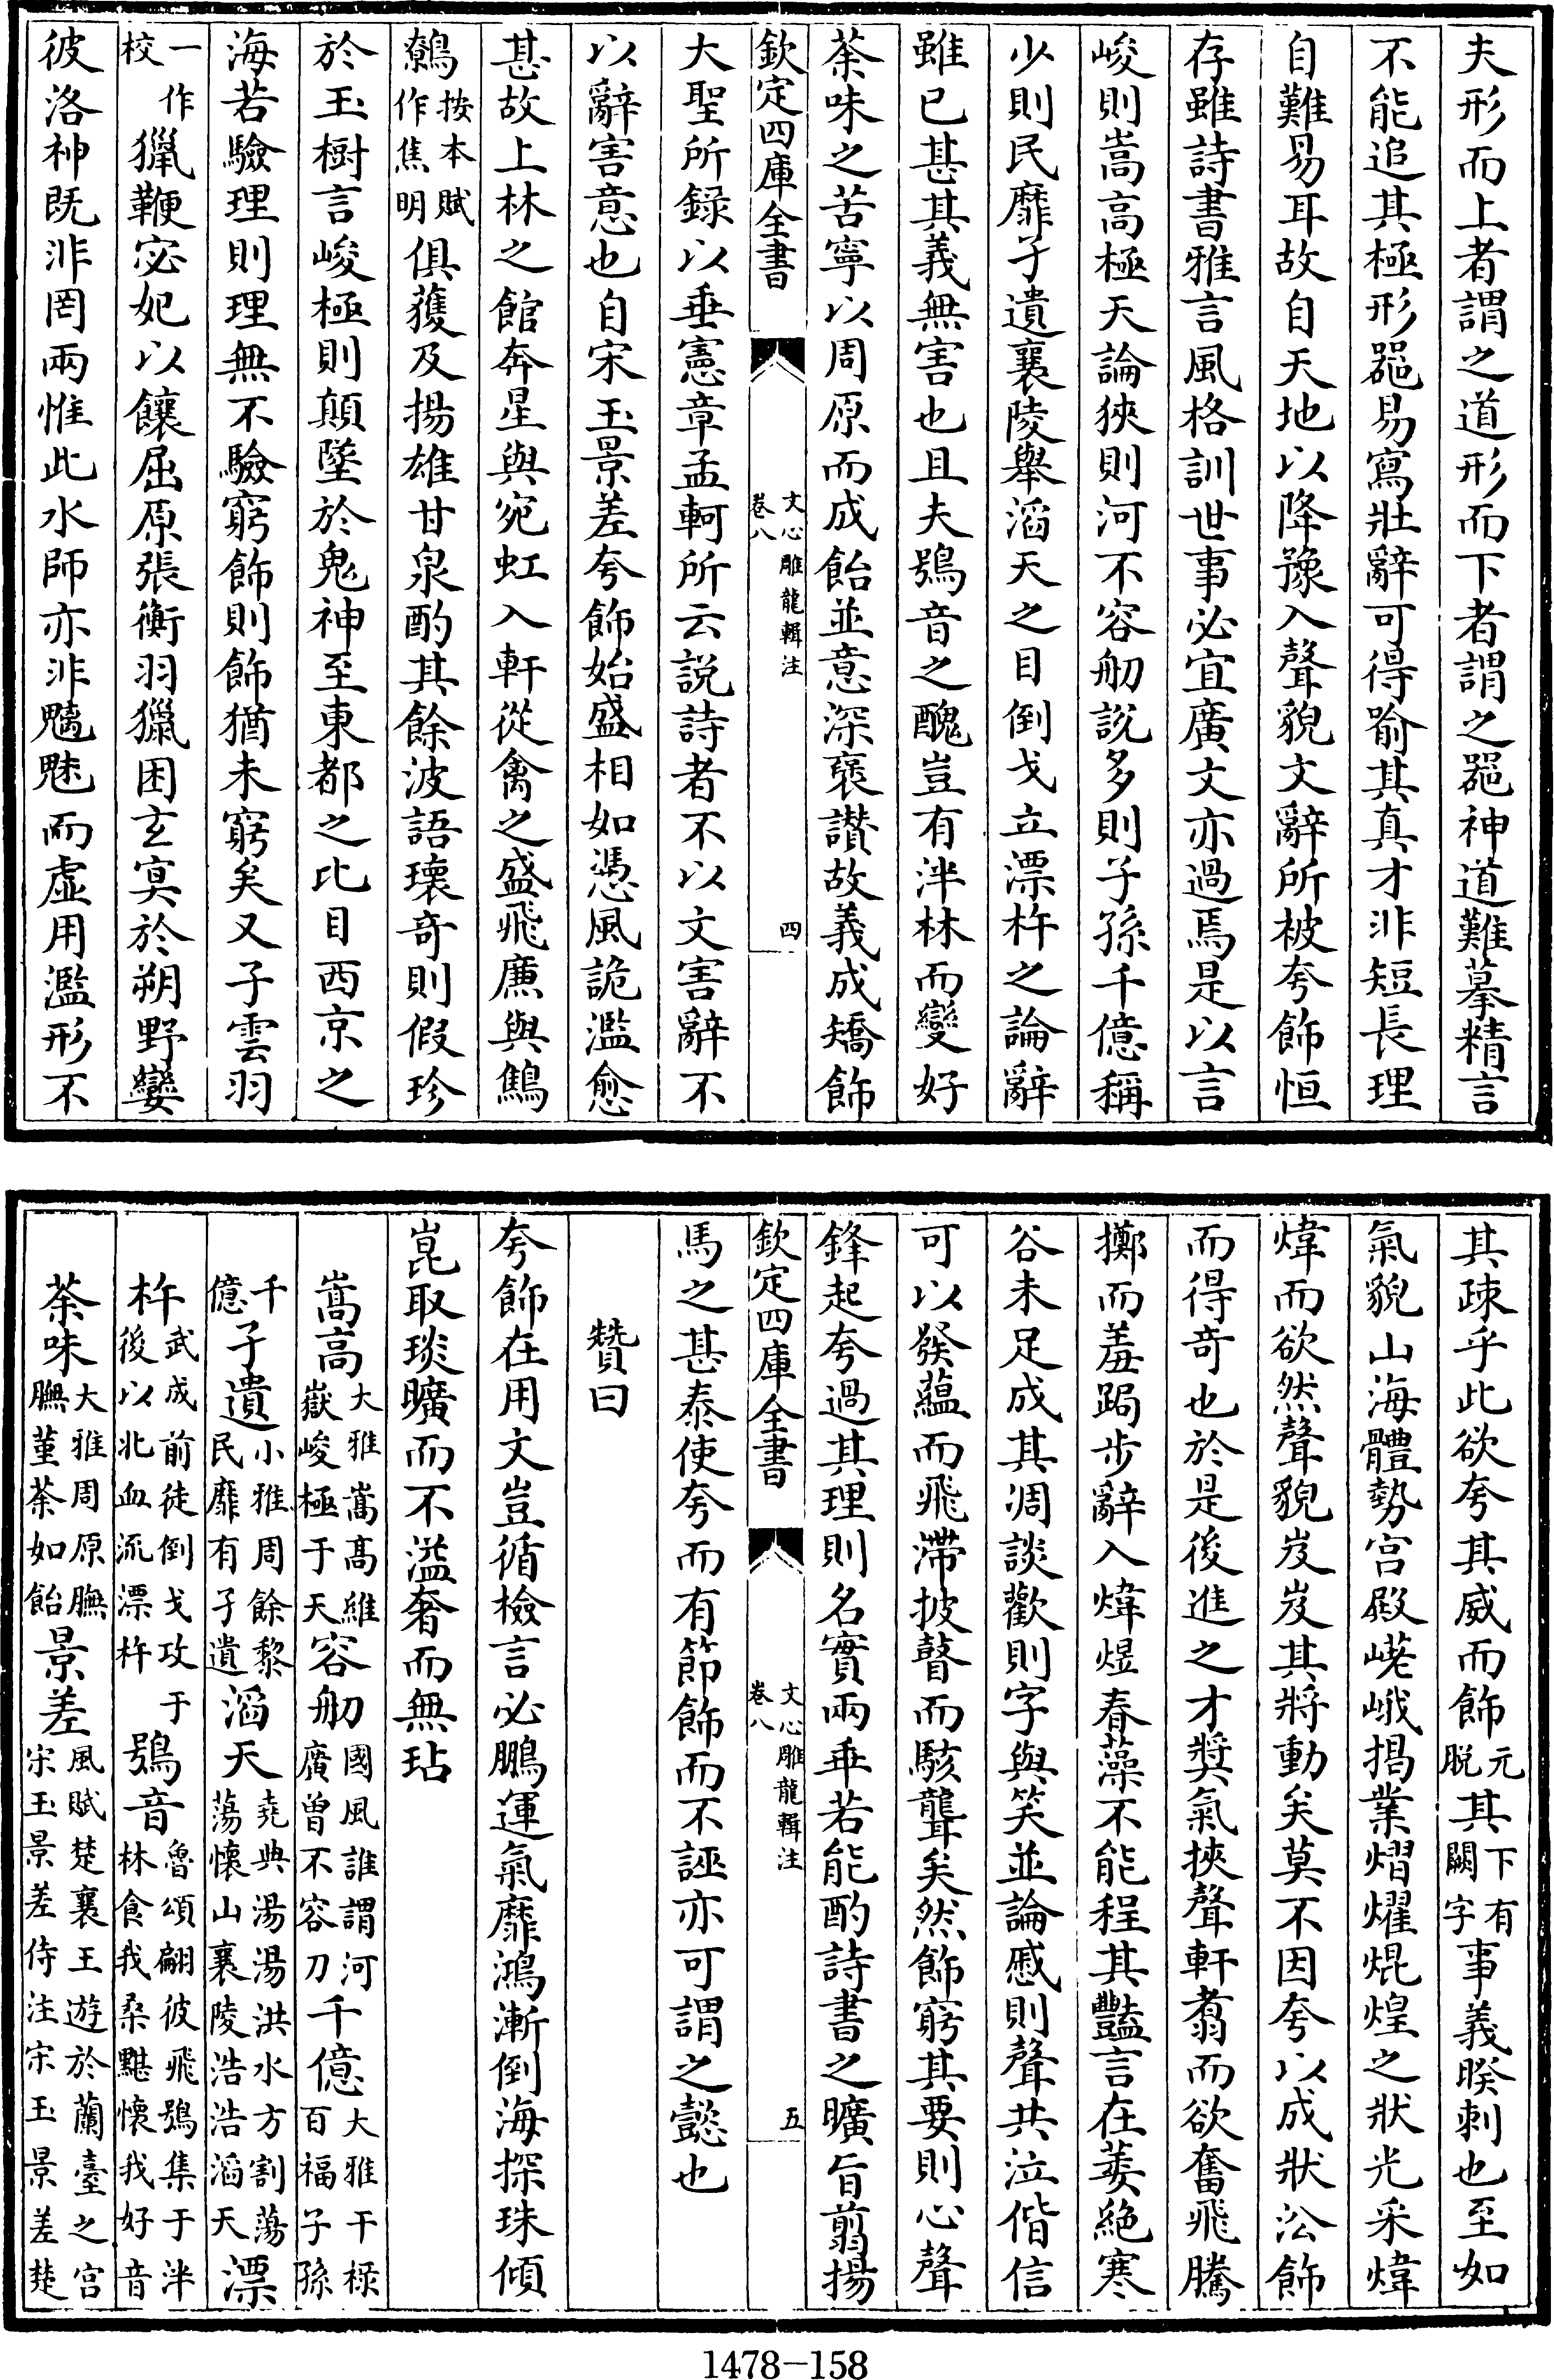 夫形而上者謂之道形而下者謂之器神道難摹精言
不能追其極形器易寫壯辭可得喻其真才非短長理
自難易耳故自天地以降豫入聲貌文辭所被夸飾恒
存雖詩書雅言風格訓世事必宜廣文亦過焉是以言
峻則嵩高極天論狹則河不容舠說多則子孫千億稱
少則民靡孑遺襄陵舉滔天之目倒戈立漂杵之論辭
雖已甚其義無害也且夫鴞音之醜豈有泮林而變好
荼味之苦寧以周原而成飴並意深褒讃故義成矯飾
欽定四庫全書
文心雕龍輯注
卷八
四
大聖所録以垂憲章孟軻所云説詩者不以文害辭不
以辭害意也自宋玉景差夸飾始盛相如憑風詭濫愈
甚故上林之館奔星與宛虹入軒從禽之盛飛廉與鷦
鷯按本賦作焦明俱獲及揚雄甘泉酌其餘波語瓌奇則假珍
於玉樹言峻極則顛墜於鬼神至東都之比目西京之
海若驗理則理無不驗窮飾則飾猶未窮矣又子雲羽
一作校獵鞭宓妃以饟屈原張衡羽獵困玄冥於朔野孌
彼洛神既非罔兩惟此水師亦非魑魅而虛用濫形不
其疎乎此欲夸其威而飾元脱其下有闕字事義暌刺也至如
氣貌山海體勢宫殿嵯峨揭業熠燿焜煌之狀光采煒
煒而欲然聲貌岌岌其將動矣莫不因夸以成狀㳂飾
而得奇也於是後進之才奬氣挾聲軒翥而欲奮飛騰
擲而羞跼步辭入煒煜春藻不能程其豔言在萎絶寒
谷未足成其凋談歡則字與笑並論慼則聲共泣偕信
可以發蘊而飛滯披瞽而駭聾矣然飾窮其要則心聲
鋒起夸過其理則名實兩乖若能酌詩書之曠旨翦揚
欽定四庫全書
文心雕龍輯注
卷八
五
馬之甚泰使夸而有節飾而不誣亦可謂之懿也
贊曰
夸飾在用文豈循檢言必鵬運氣靡鴻漸倒海探珠傾
崑取琰曠而不溢奢而無玷
嵩高大雅嵩高維嶽峻極于天容舠國風誰謂河廣曾不容刀千億大雅干祿百福子孫
千億孑遺小雅周餘黎民靡有孑遺滔天堯典湯湯洪水方割蕩蕩懷山襄陵浩浩滔天漂
杵武成前徒倒戈攻于後以北血流漂杵鴞音魯頌翩彼飛鴞集于泮林食我桑黮懷我好音
荼味大雅周原膴膴堇荼如飴景差風賦楚襄王遊於蘭臺之宫宋玉景差侍注宋玉景差楚
1478-158